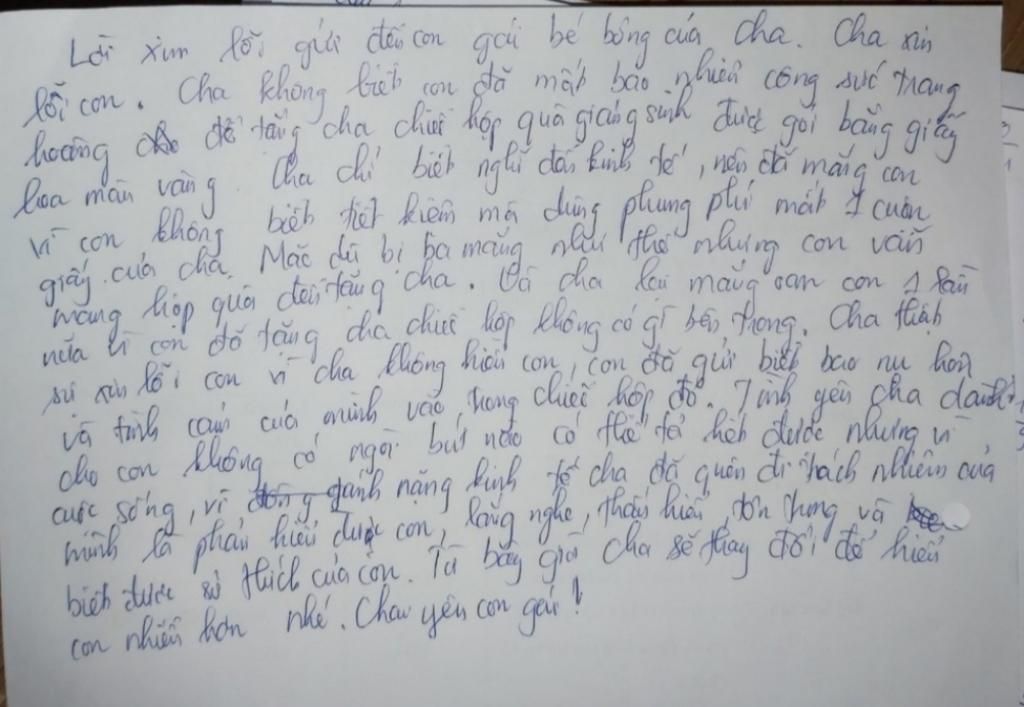 Lời xin lỗi gửi đến con gái bé bỏng của cha. Cha xin
lỗi con. Cha không biết con đã mất bao nhiêu công sức trang
hoàng để tặng cha chiếc hộp quà giáng sinh được gói bằng giấy
hoa màu vàng. Cha chỉ biết nghĩ đến kinh tế, nên đã mắng con
vì con không biết tiết kiệm mà dùng phung phí mất 1 cuộn
giấy của cha. Mặc dù bị ba mắng như thế nhưng con vẫn
mang hộp quà đến tặng cha. Và cha lại mắng oan con 1 lần
nữa vì con đã tặng cha chiếc hộp không có gì bên trong. Cha thành
sự xin lỗi con vì cha không hiểu con, con đã gửi biết bao nụ hôn
và tình cảm của mình vào trong chiếc hộp đó. Tình yêu cha dành
cho con không có ngòi bút nào có thể tả hết được nhưng vì
cuộc sống, vì gánh nặng kinh tế cha đã quên đi trách nhiệm của
mình là phải hiểu được con, lắng nghe, thấu hiểu, tôn trọng và
biết được sở thích của con. Từ bây giờ cha sẽ thay đổi để hiểu
con nhiều hơn nhé. Cha yêu con gái!